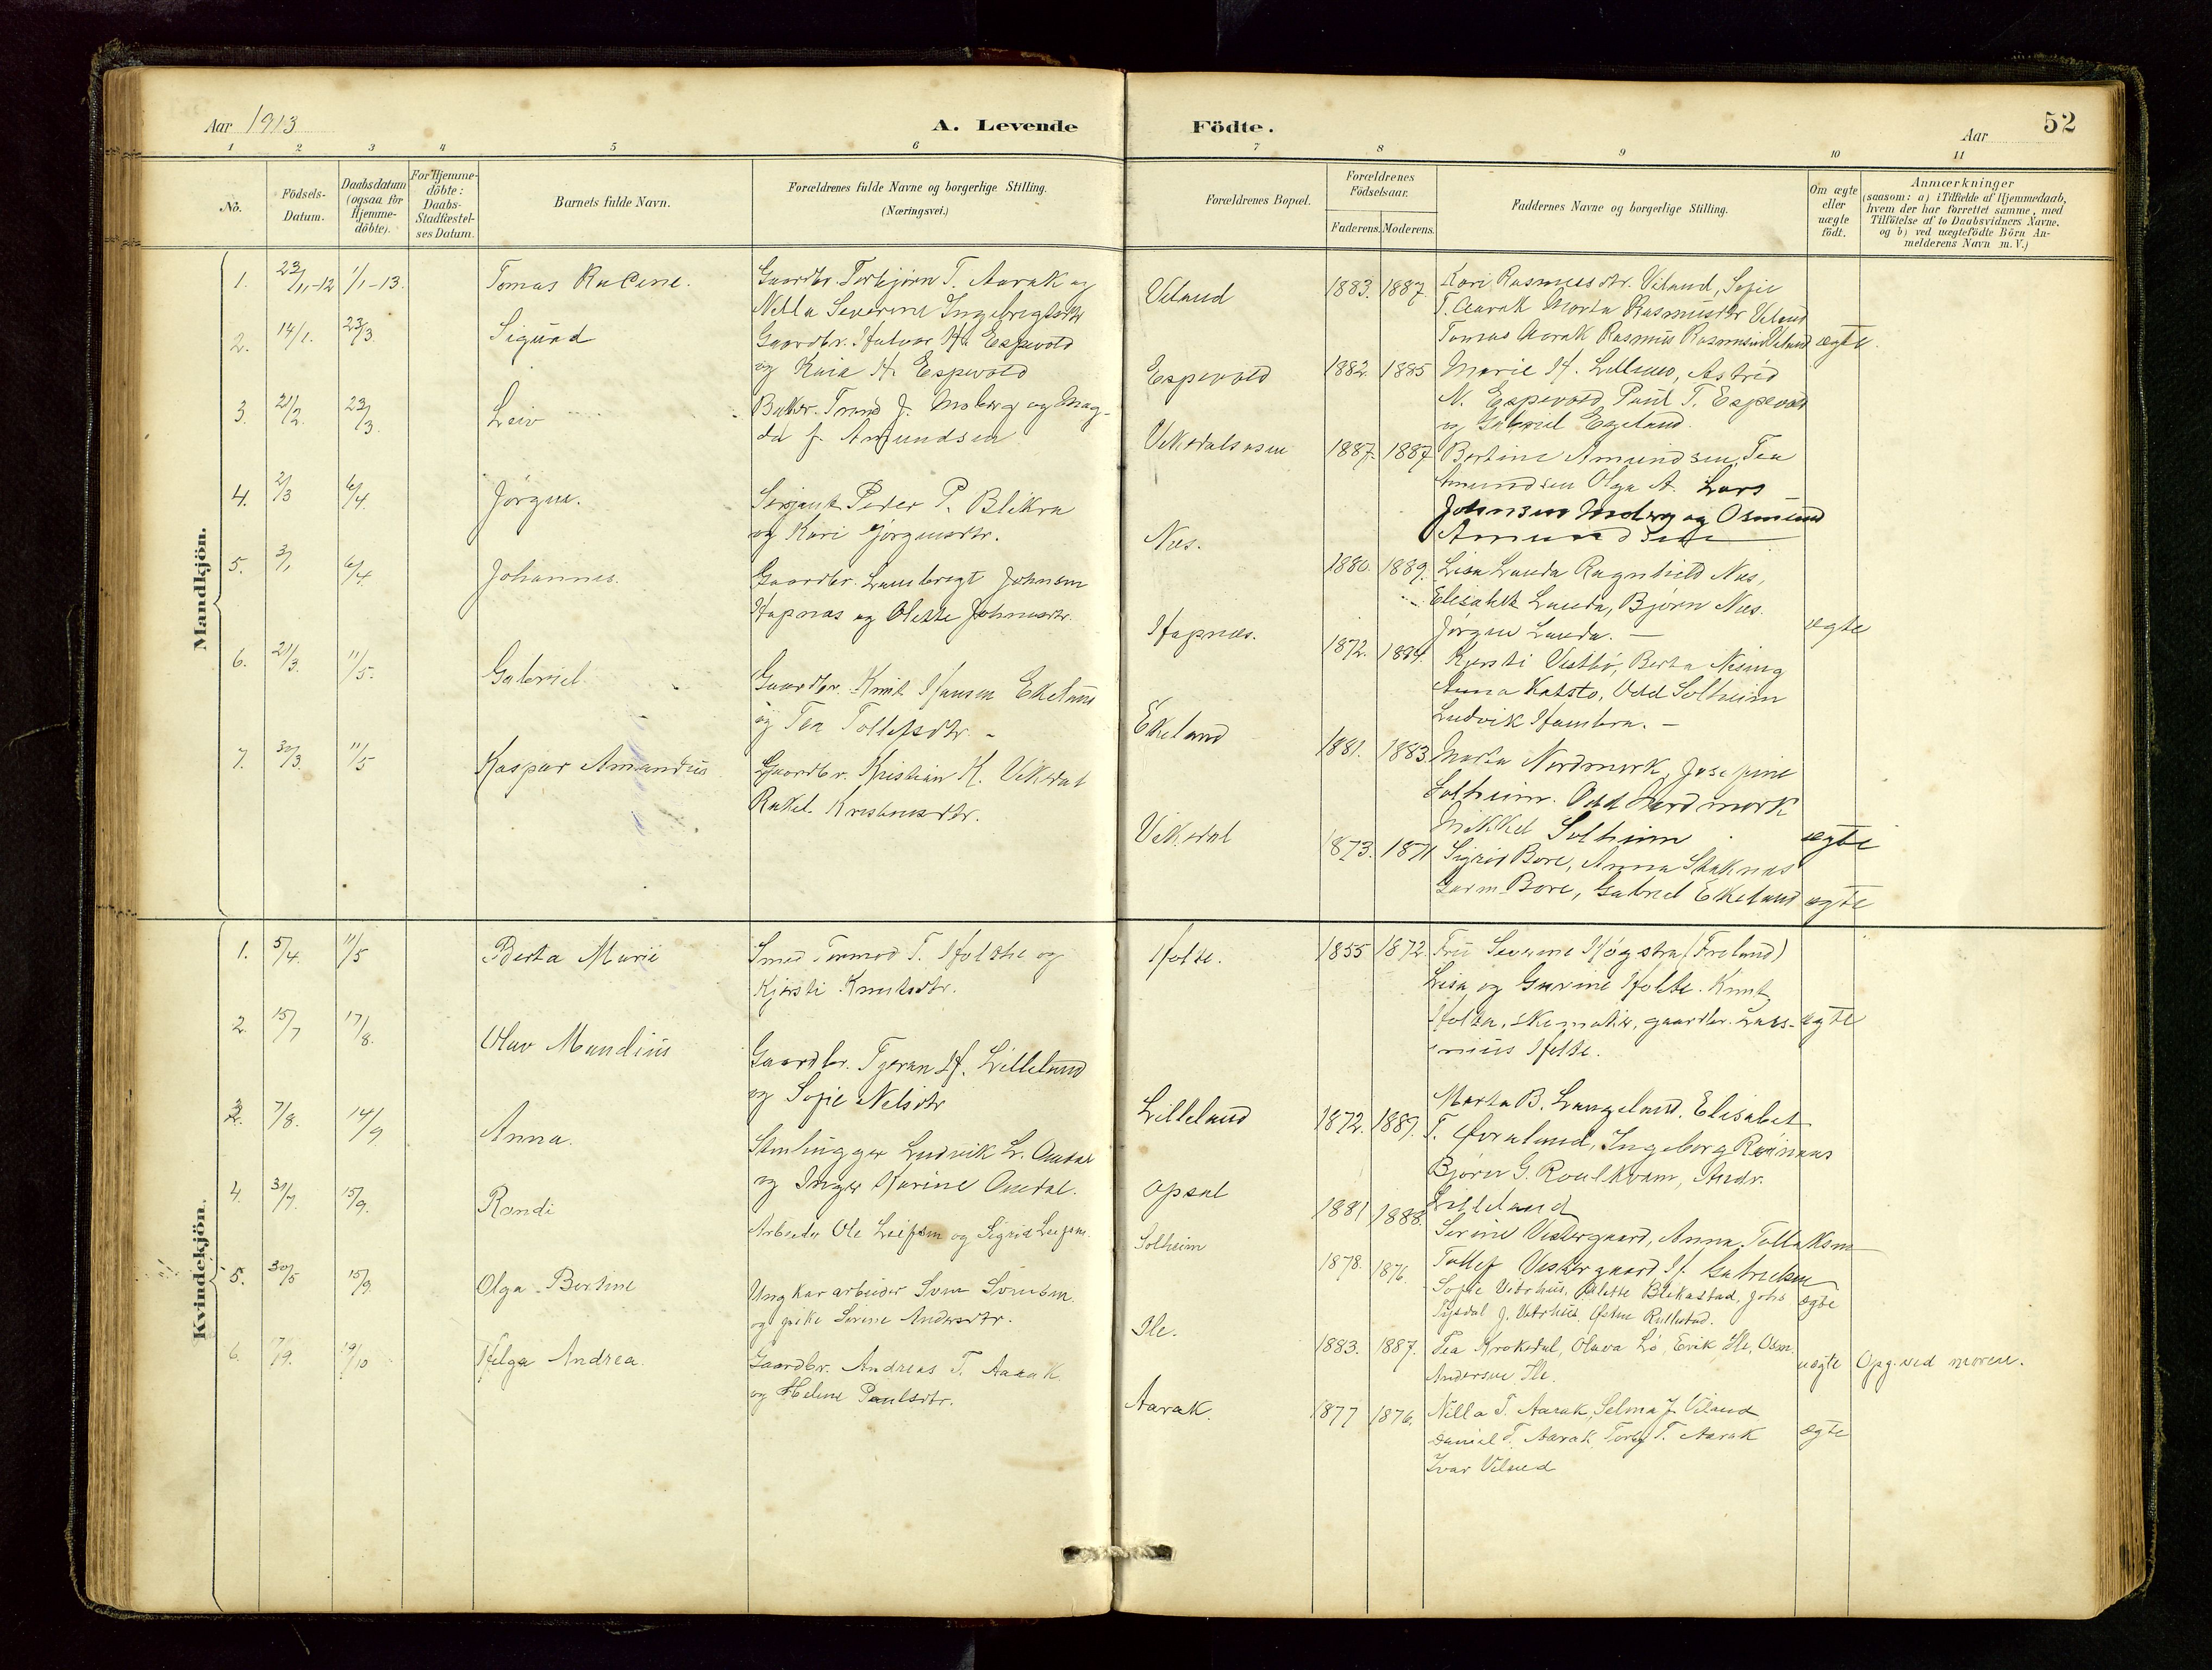 Aar 1913
A. Levende Födte.
Aar
52
1 2 3 4 5 6 7 8 9 10 11
No.
Födsels-Datum.
Daabsdatum (ogsaa for Hjemme-döbte).
For Hjemme-döbte: Daabs-Stadfæstel-ses Datum.
Barnets fulde Navn.
Forældrenes fulde Navne og borgerlige Stilling. (Næringsvei.)
Forældrenes Bopæl.
Forældrenes Födselsaar.
Faderens. Moderens.
Faddernes Navne og borgerlige Stilling.
Om ægte eller uægte födt.
Anmærkninger
(saasom: a) i Tilfælde af Hjemmedaab,
hvem der har forrettet samme, med
Tilföielse af to Daabsvidners Navne.
og b) ved uægtefödte Börn An-
melderens Navn m. V.)
Mandkjön.
1. 23/11-12 1/1-13. Tomas
Gaardbr. Torbjørn T. Aarak og
Nella Severine Ingebrigtsdtr
Viland 1883. 1887.
Kari Rasmusdtr. Viland, Sofie
T. Aarak Marta Rasmusdtr Viland
Tomas Aarak Rasmus Rasmusen Viland ægte.
2. 14/1. 23/3. Sigurd
Gaardbr. Halvor H. Espevold
og Kaia H. Espevold
Espevold 1882. 1885
Marie H. Lilleland, Astrid
N. Espevold Paul T. Espevold
og Gabriel Egeland.
3. 21/2. 23/3. Leiv
Baker. Trond J. Moberg og Mag-
da f. Amundsen
Vikedalsosen 1887. 1887
Bertine Amundsen, Tea
Amundsen Olga A. Lars
Johnsen Moberg og Osmund
Amundsen
4. 2/3 6/4. Jörgen.
Serjant Peder P. Blikra
og Kari Jörgensdtr.
Nes. 1880. 1889.
Lisa Landa Ragnhild Nes,
Elisabet Landa, Bjørn Nes.
Jørgen Landa. —
ægte
5. 3/1 6/4 Johannes.
Gaardbr. Lambregt Johnsen
Hapnes og Olette Johnsdtr.
Hapnes. 1872. 1884.
Kjersti Vestbö, Berta
Anna Kalstø, Odd Solheim
Ludvik Hambra. —
6. 21/3. 11/5. Gabriel.
Gaardbr. Knut Hansen Ekeland
og Tea Tollefsdtr. -
Ekeland 1881. 1883.
Marta Nordmork, Josefine
Solheim. Odd Nordmork
Mikkel Solheim ægte
7. 30/3. 11/5 Kaspar Amandus
Gaardbr. Kristian K. Vikedal
Rakel Kristensdtr.
Vikedal 1873. 1871
Sigrid Bore, Anna Staknes
Garm. Bore, Gabriel Ekeland ægte
Kvindekjön.
1. 5/4. 11/5 Berta Marie
Smed Tormod T. Holthe og
Kjersti Knutsdtr.
Holte. 1855 1872.
Fru Severine Høgstra (Froland)
Lisa og Gurine Holte. Knut
Holte, skomaker, gaardbr. Lars- ægte
enius Holte.
2. 15/7 17/8. Olav Mandius
Gaardbr. Tjeran H. Lilleland
og Sofie Nelsdtr
Lilleland 1872. 1887.
Marta B. Langeland. Elisabet
T. Øvreland, Ingeborg
Bjørn G. Roulkvam, Andr.
Lilleland
3. 7/8. 14/9 Anna.
Stenhugger Ludvik L. Omdal
og Inger Karine Omdal.
Opsal 1881 1888.
Serine Vestergaard, Anna Tollaksen
Tollef Vestergaard H. Gabrielsen
4. 31/7. 15/9. Randi
Arbeider Ole Leifsen og Sigrid Leifsen.
Solheim 1878. 1876.
Sofie Vetrhus, Olette Blikastad, Johs ægte
Tysdal J. Vetrhus, Østen Rullestad.
5. 30/5 15/9. Olga Bertine
Ungkar arbeider Sven Svensen
og pike Serine Andersdtr.
Ile. 1883. 1887.
Tea Krokedal, Olava Lø, Erik Ile, Osm.
Andersen Ile.
uægte Opg. ved moren.
6. 1/9. 19/10 Helga Andrea.
Gaardbr. Andreas T. Aarak
og Helene Paulsdtr.
Aarak. 1877 1876.
Nella T. Aarak, Selma J. Viland
Daniel T. Aarak, Torbj. T. Aarak ægte
Ivar Viland